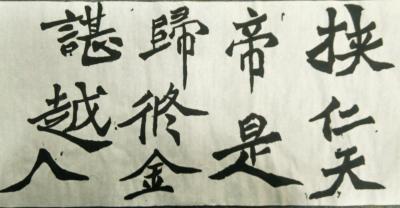 挟仁天
帝是
歸修金
諶越人